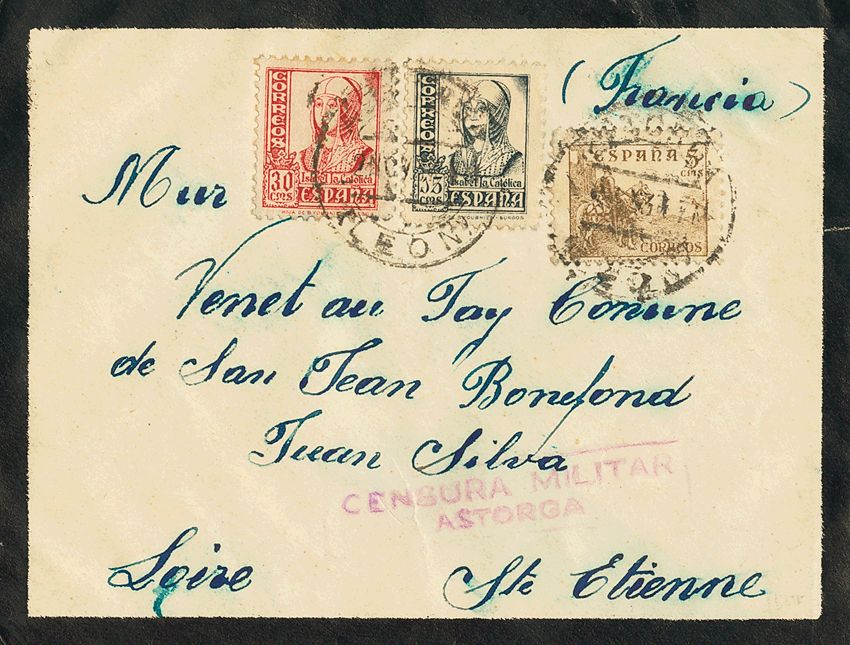 (Francia)
CORREOS
30 cms
Isabel la Católica
ESPAÑA
CORREOS
35 cms
Isabel la Católica
ESPAÑA
ESPAÑA 5 cms
CORREOS
LEON
Mur
Venet au Fay Comune
de San Jean Bonefond
Juan Silva
CENSURA MILITAR
ASTORGA
Loire Ste Etienne